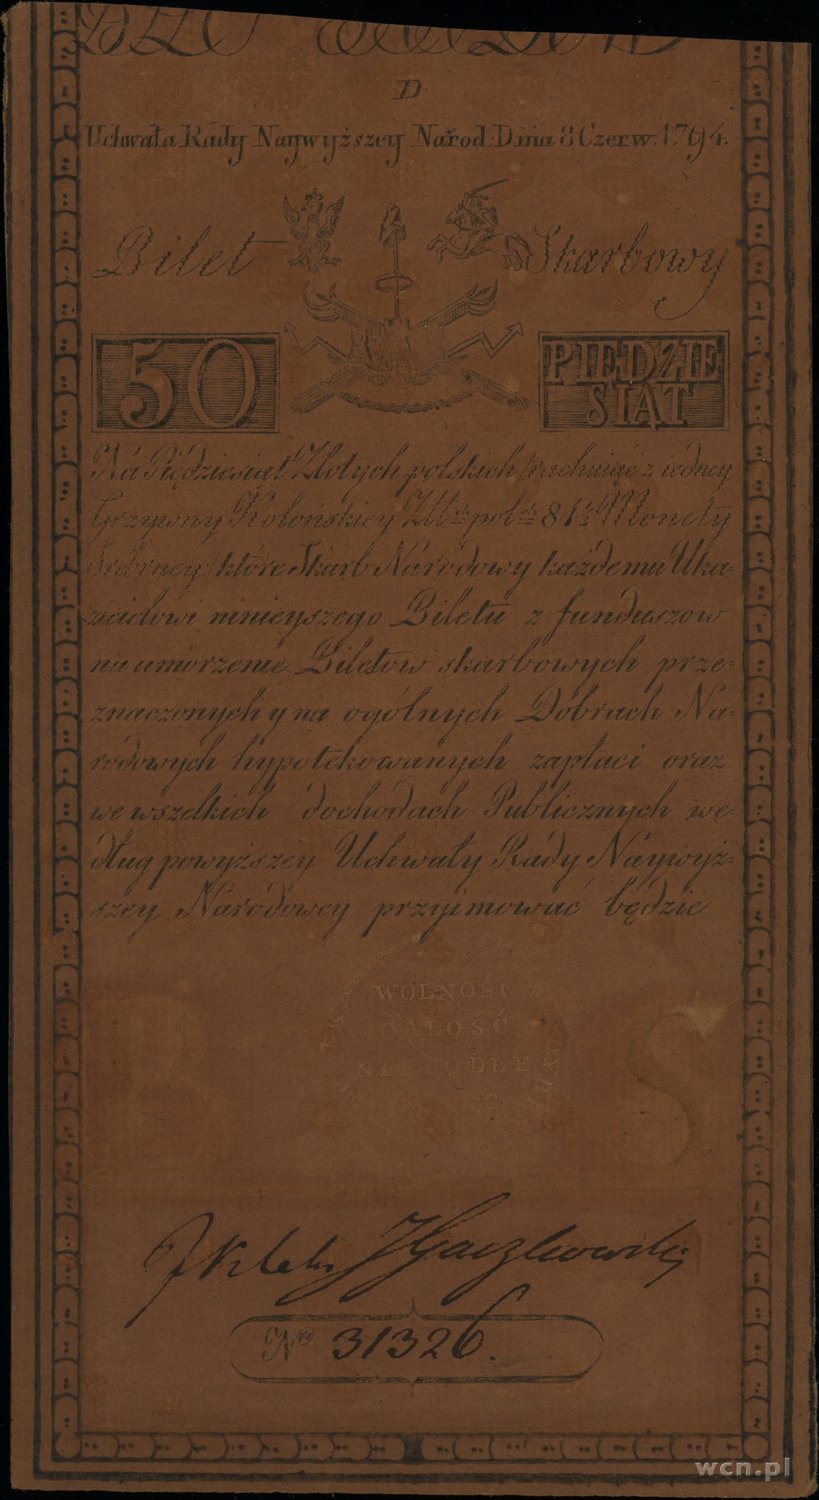 D
Uchwała Rady Naywyższey Narod. Dnia 8 Czerw. 1794.
Bilet Skarbowy
50
PIĘDZIE
SIĄT
Na Piędziesiąt Złotych polskich /rachuiąc z iedney
Grzywny Kolonskiey Złł. pol. 84¼ Monety
Srebrney/ które Skarb Narodowy każdemu Uka-
zicielowi ninieyszego Biletu z funduszow
na umorzenie Biletow skarbowych prze-
znaczonych y na ogólnych Dobrach Na-
rodowych hypotekowanych zapłaci oraz
we wszelkich dochodach Publicznych we-
dług powyższey Uchwały Rady Naywyż-
szey Narodowey przyimować będzie
WOLNOŚĆ
CAŁOŚĆ
NIEPODLE
B S
JGaczkowski
Nro 31326.
wcn.pl